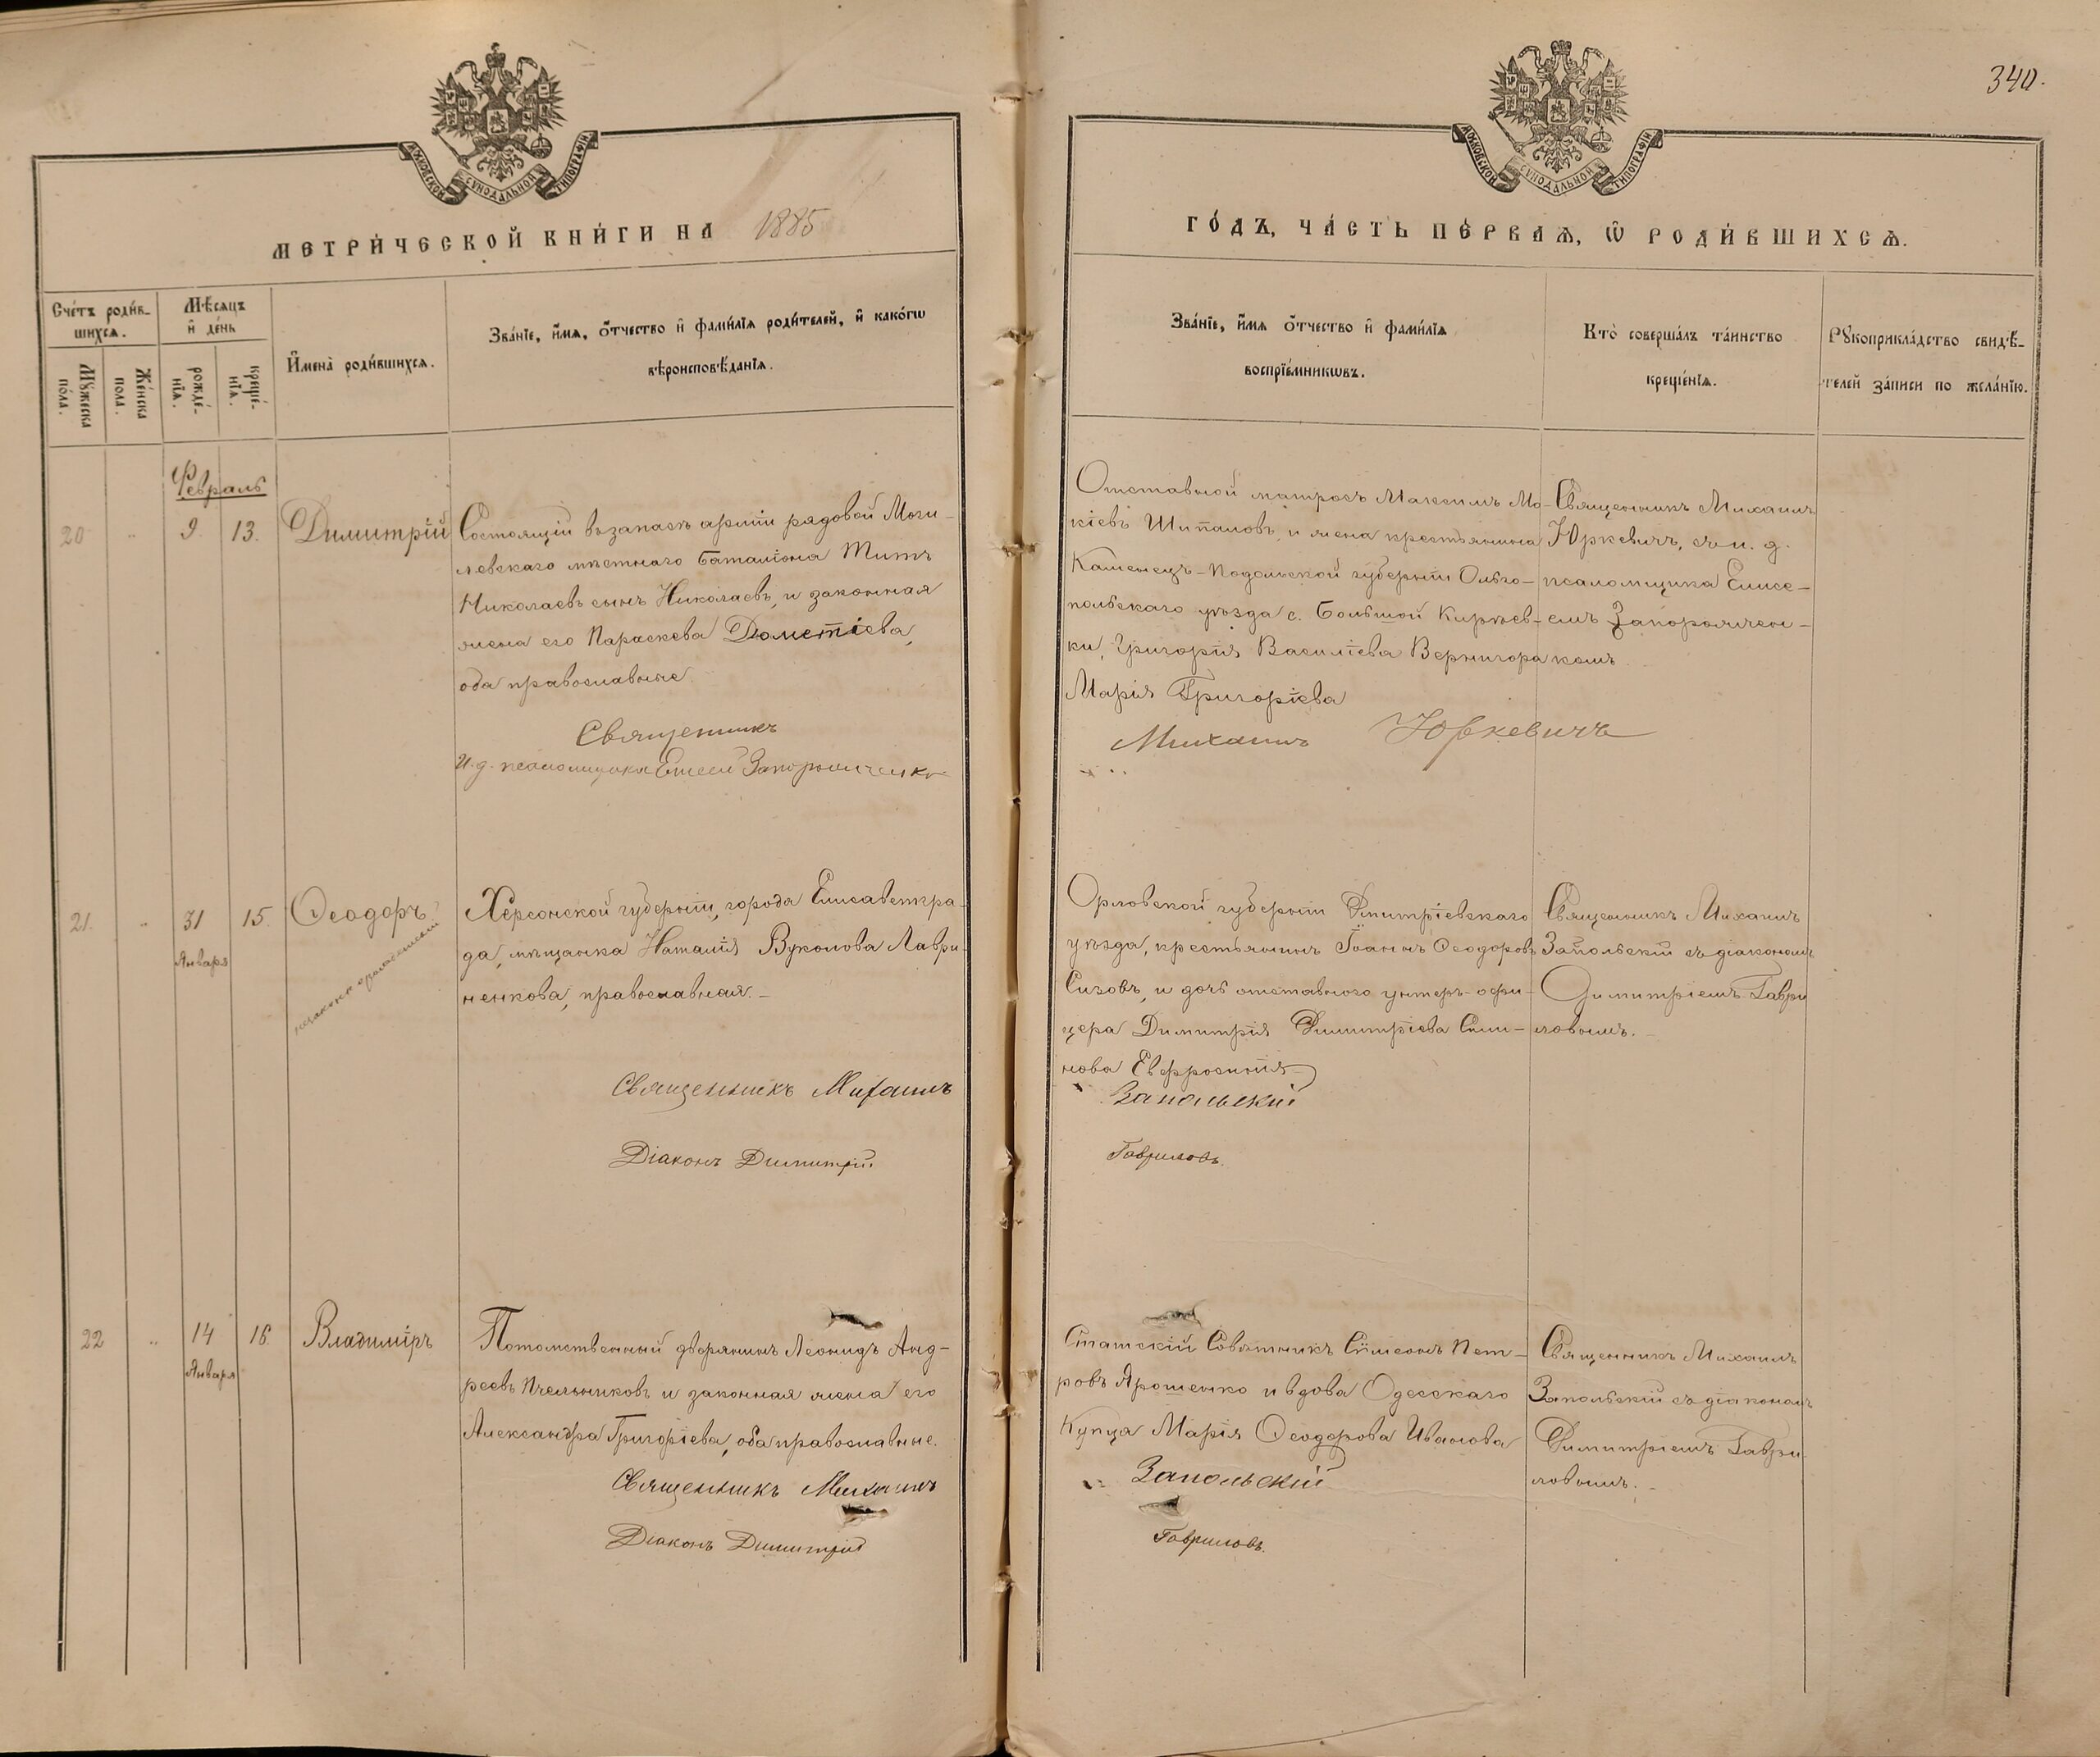 340.
МОСКОВСКОЙ СѴНОДАЛЬНОЙ ТИПОГРАФІИ
МОСКОВСКОЙ СѴНОДАЛЬНОЙ ТИПОГРАФІИ
МЕТРИ́ЧЕСКОЙ КНИ́ГИ НА 1885
ГО́ДЪ, ЧА́СТЬ ПЕ́РВАѦ, Ѡ҆ РОДИ́ВШИХСѦ.
Сче́тъ роди́в-
шихсѧ.
Мꙋ́жеска
по́ла.
Же́нска
пола.
Мѣ́сѧцъ
и҆ де́нь
рожде́-
нїѧ.
креще́-
нїѧ.
И҆мена̀ роди́вшихсѧ.
Зва́нїе, и҆́мѧ, ѻ҆́тчество и҆ фами́лїѧ роди́телей, и҆ како́гѡ
вѣроисповѣ́данїѧ.
Зва́нїе, и҆́мѧ ѻ҆́тчество и҆ фами́лїѧ
воспрїе́мникѡвъ.
Кто̀ соверша́лъ та́инство
креще́нїѧ.
Рꙋкоприкла́дство свидѣ́-
телей за́писи по жела́нїю.
Февраль
20 " 9. 13. Димитрій
Состоящій въ запасѣ арміи рядовой Моги-
левскаго мѣстнаго баталіона Титъ
Николаевъ сынъ Николаевъ, и законная
жена его Параскева Дометіева,
оба православные.
Священникъ
И. д. псаломщика Елисей Запорожченко
Отставной матросъ Максимъ Мо-
кіевъ Шипаловъ, и жена крестьянина
Каменецъ-Подольской губерніи Ольго-
польскаго уѣзда с. Большой Кирѣев-
ки, Григорія Василіева Вернигора
Марія Григоріева
Михаилъ Юркевичъ
Священникъ Михаилъ
Юркевичъ, съ и. д.
псаломщика Елисе-
емъ Запорожчен-
комъ.
21. " 31 15. Ѳеодоръ
Января
Херсонской губерніи, города Елисаветгра-
да, мѣщанка Наталія Вуколова Лаври-
ненкова, православная.-
Священникъ Михаилъ
Діаконъ Димитрій
Орловской губерніи Димитріевскаго
уѣзда, крестьянинъ Іоаннъ Ѳеодоровъ
Сизовъ, и дочь отставного унтеръ-офи-
цера Димитрія Димитріева Сили-
нова Евфросинія
Запольскій
Гавриловъ.
Священникъ Михаилъ
Запольскій съ діакономъ
Димитріемъ Гаври
ловымъ.-
22 " 14 16. Владиміръ
Января
Потомственный дворянинъ Леонидъ Анд-
реевъ Пчельниковъ и законная жена его
Александра Григоріева, оба православные.
Священникъ Михаилъ
Діаконъ Димитрій
Статскій Совѣтникъ Сѵмеонъ Пет-
ровъ Ярошенко и вдова Одесскаго
Купца Марія Ѳеодорова Иванова
Запольскій
Гавриловъ.
Священникъ Михаилъ
Запольскій съ діакономъ
Димитріемъ Гаври-
ловымъ.-